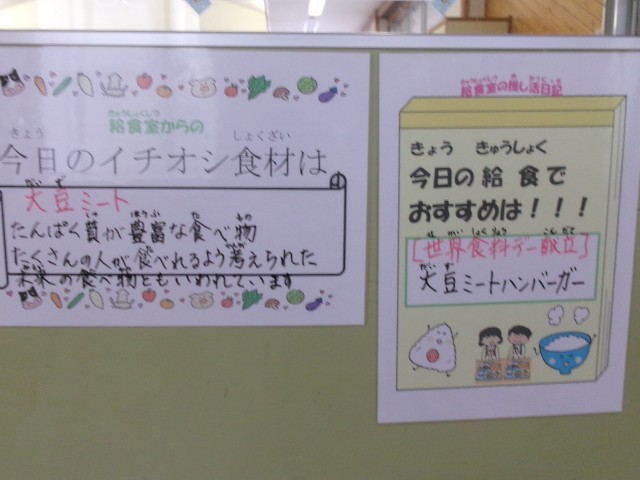 給食室からの
今日のイチオシ食材は
大豆ミート
たんぱく質が豊富な食べ物
たくさんの人が食べれるよう考えられた
未来の食べ物ともいわれています
給食室の推し活日記
今日の給食で
おすすめは！！！
[世界食料デー献立]
大豆ミートハンバーガー